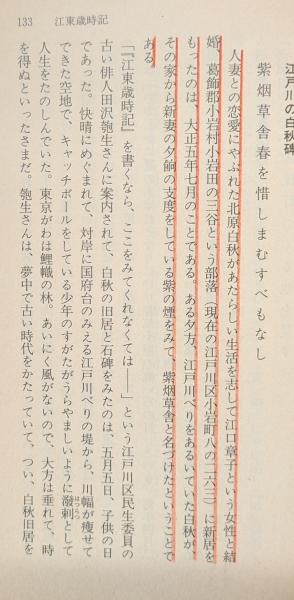 133　江東歳時記
江戸川の白秋碑
紫烟草舎春を惜しまむすべもなし
人妻との恋愛にやぶれた北原白秋があたらしい生活を志して江口章子という女性と結
婚、葛飾郡小岩村小岩田の三谷という部落（現在の江戸川区小岩町八の二六三）に新居を
もったのは、大正五年七月のことである。ある夕方、江戸川べりをあるいていた白秋が、
その家から新妻の夕餉の支度をしている紫の煙をみて、紫烟草舎と名づけたということで
ある。
「『江東歳時記』を書くなら、ここをみてくれなくては――」という江戸川区民生委員の
古い俳人田沢匏生さんに案内されて、白秋の旧居と石碑をみたのは、五月五日、子供の日
であった。快晴にめぐまれて、対岸に国府台のみえる江戸川べりの堤から、川幅が痩せて
できた空地で、キャッチボールをしている少年のすがたがうらやましいように潑剌として
人生をたのしんでいた。東京がわは鯉幟の林。あいにく風がないので、大方は垂れて、時
を得ぬといったさまだ。匏生さんは、夢中で古い時代をかたっていて、つい、白秋旧居を